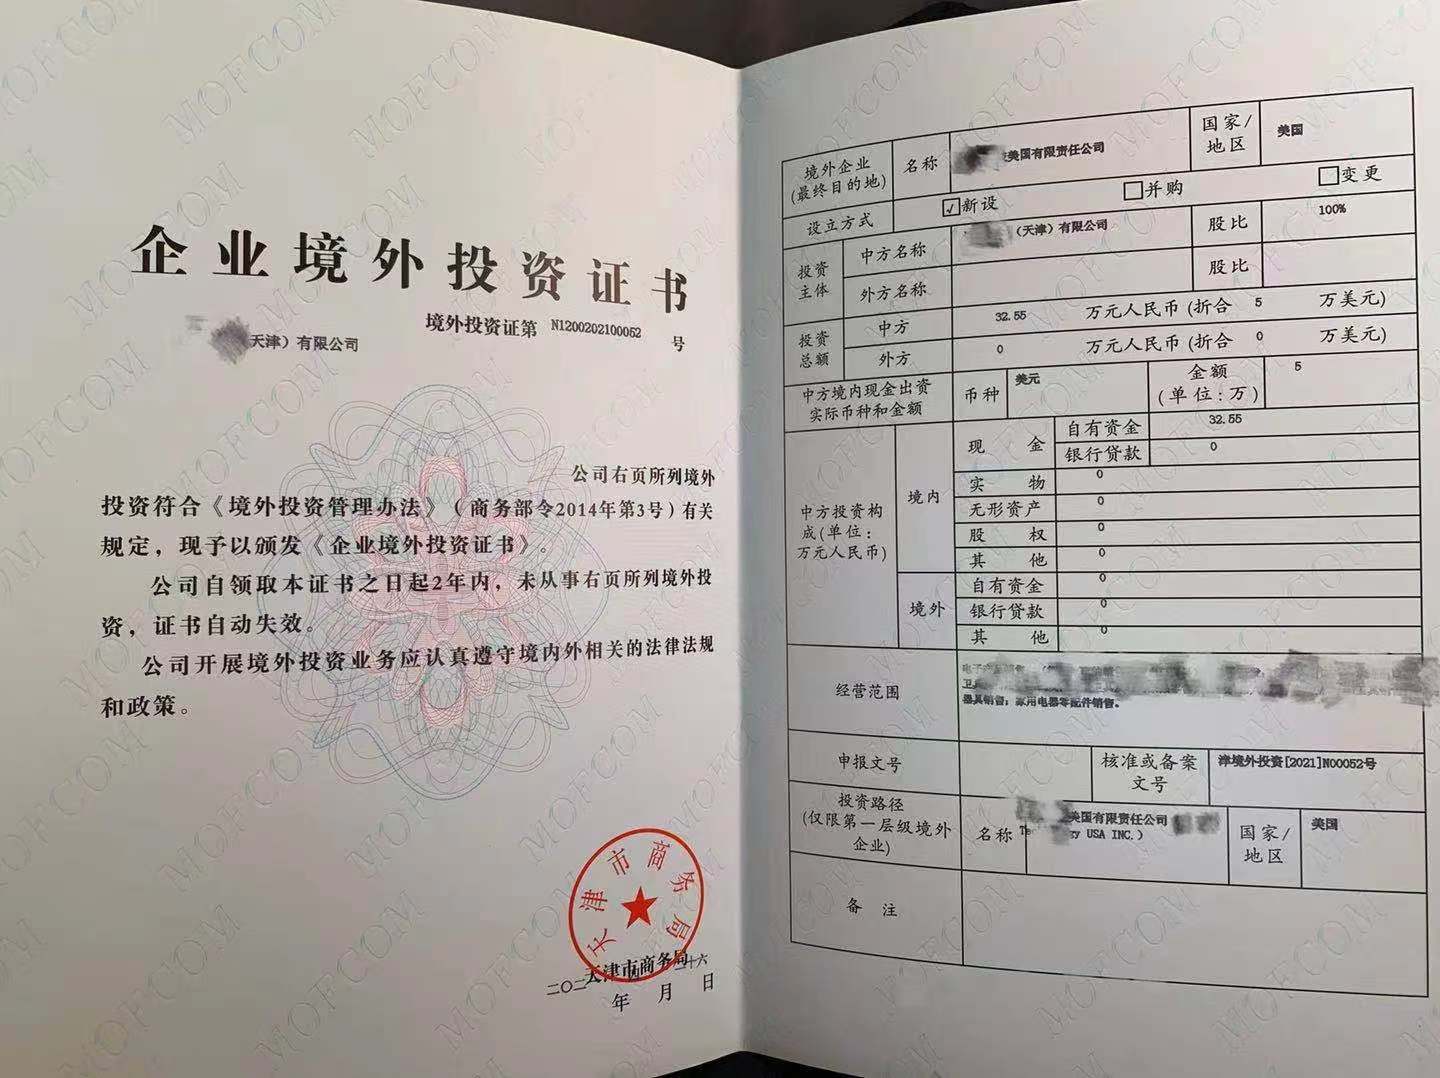 企业境外投资证书
境外投资证第 N1200202100052 号
天津）有限公司
公司右页所列境外
投资符合《境外投资管理办法》（商务部令2014年第3号）有关
规定，现予以颁发《企业境外投资证书》。
公司自领取本证书之日起2年内，未从事右页所列境外投
资，证书自动失效。
公司开展境外投资业务应认真遵守境内外相关的法律法规
和政策。
天津市商务局
天津市商务局
年 月 日
境外企业
(最终目的地)
名称
美国有限责任公司
国家/
地区
美国
设立方式
☑新设
□并购
□变更
投资
主体
中方名称
（天津）有限公司
股比
100%
外方名称
股比
投资
总额
中方
32.55 万元人民币 (折合 5 万美元)
外方
0 万元人民币 (折合 0 万美元)
中方境内现金出资
实际币种和金额
币种
美元
金额
(单位:万)
5
中方投资构
成(单位:
万元人民币)
境内
现 金
自有资金
32.55
银行贷款
0
实 物
0
无形资产
0
股 权
0
其 他
0
境外
自有资金
0
银行贷款
0
其 他
0
经营范围
器具销售；家用电器零配件销售。
申报文号
核准或备案
文号
津境外投资[2021]N00052号
投资路径
(仅限第一层级境外
企业)
名称
美国有限责任公司
USA INC.)
国家/
地区
美国
备 注
MOFCOM